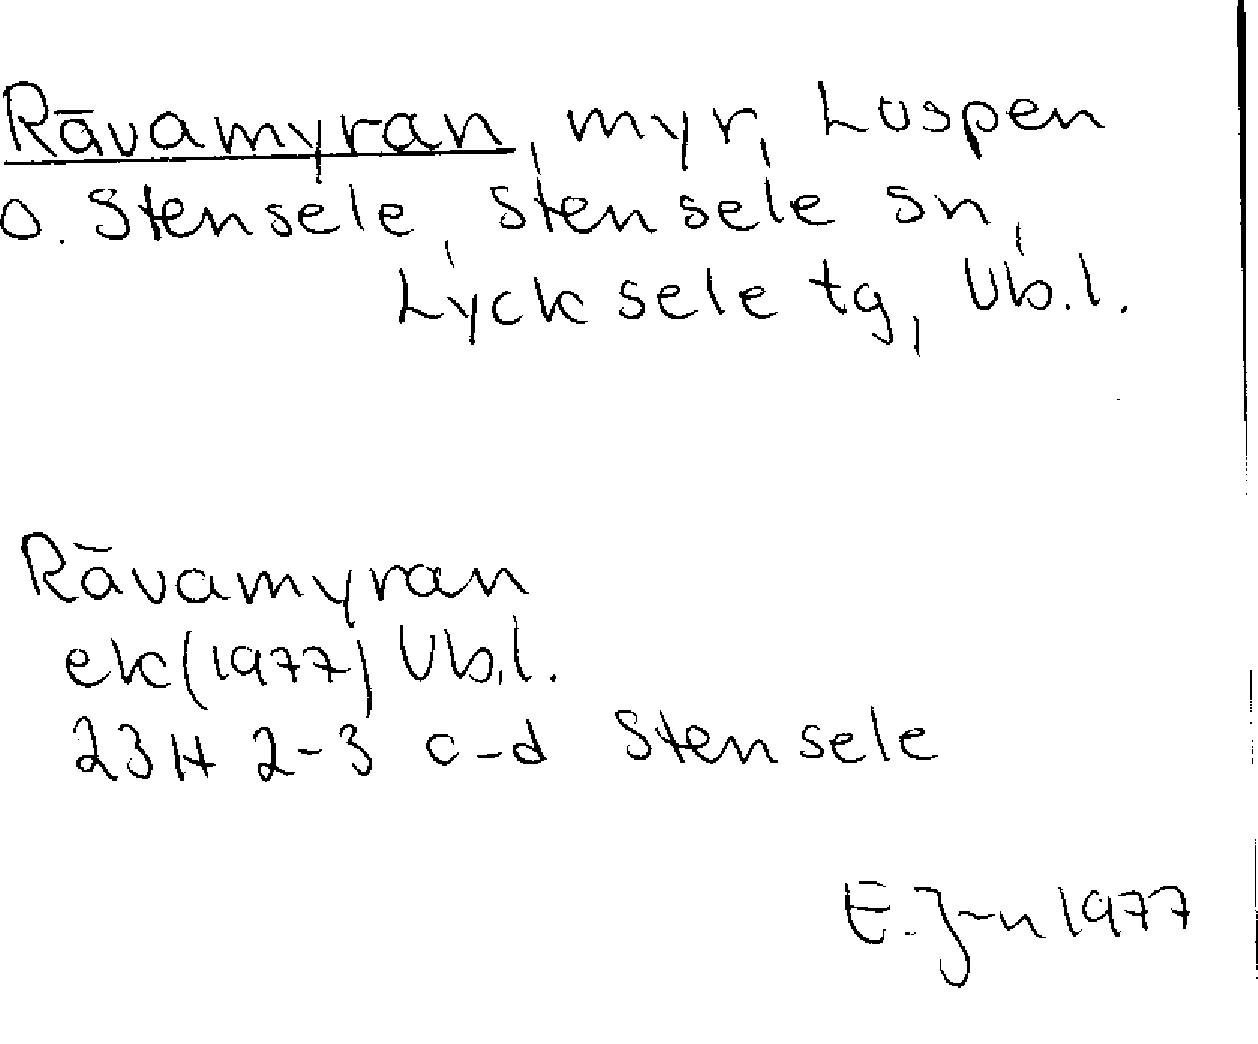 Rävamyran, myr, Luspen
o. Stensele, Stensele sn,
Lycksele tg, Vb.l.
Rävamyran
ek (1977) Vb.l.
23H 2-3 c-d Stensele
E. J-n 1977